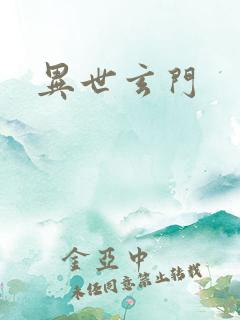 異世玄門
金亞中
未經同意禁止轉載